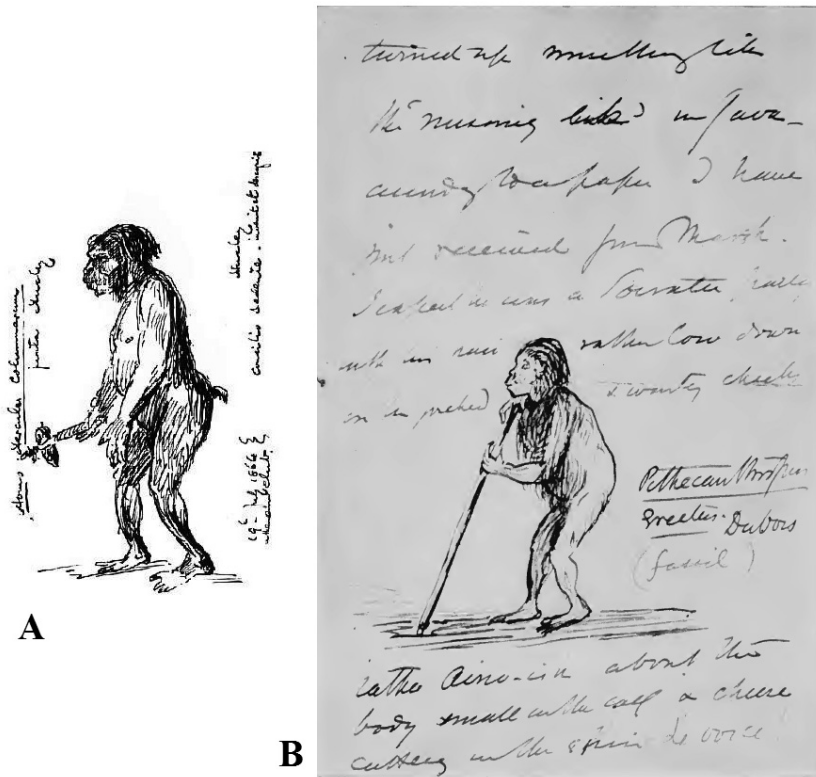 A
Homo Herculei Columnarum
Huxley
19th July 1864
Huxley
B
turned up something like
the missing link in Java—
according to a paper I have
just received from Marsh.
I expect he was a Socratic party
with his hair rather low down
on his forehead & warty cheeks
Pithecanthropus
Erectus. Dubois
(fossil)
rather Aino-ish about the
body small in the calf & cheese
cutting in the shins Le voici!